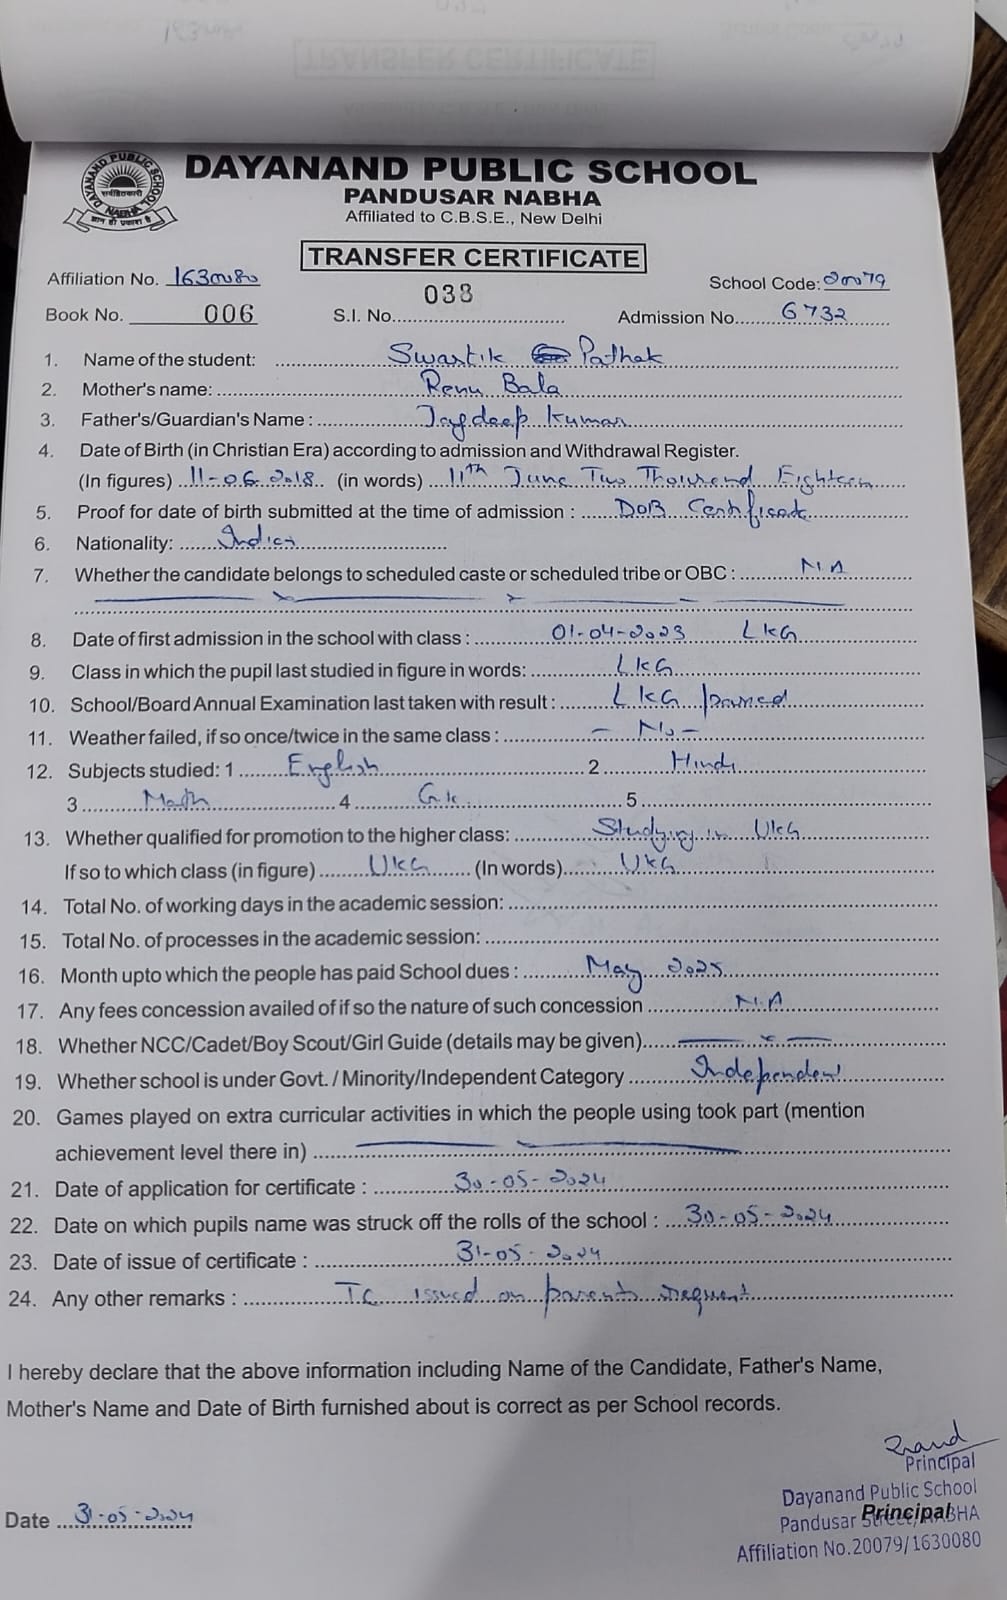 DAYANAND PUBLIC SCHOOL
PANDUSAR NABHA
Affiliated to C.B.S.E., New Delhi
TRANSFER CERTIFICATE
Affiliation No. 1630080 School Code: 20079
Book No. 006 S.I. No. 038 Admission No. 6732
1. Name of the student: Swastik Pathak
2. Mother's name: Renu Bala
3. Father's/Guardian's Name : Jagdeep Kumar
4. Date of Birth (in Christian Era) according to admission and Withdrawal Register.
(In figures) 11-06-2018 (in words) 11th June Two Thousand Eighteen
5. Proof for date of birth submitted at the time of admission : DOB Certificate
6. Nationality: Indian
7. Whether the candidate belongs to scheduled caste or scheduled tribe or OBC : N.A
8. Date of first admission in the school with class : 01-04-2023 LKG
9. Class in which the pupil last studied in figure in words: LKG
10. School/Board Annual Examination last taken with result : LKG passed
11. Weather failed, if so once/twice in the same class : - No -
12. Subjects studied: 1 English 2 Hindi
3 Math 4 G.K 5
13. Whether qualified for promotion to the higher class: Studying in UKG
If so to which class (in figure) UKG (In words) UKG
14. Total No. of working days in the academic session:
15. Total No. of processes in the academic session:
16. Month upto which the people has paid School dues : May 2025
17. Any fees concession availed of if so the nature of such concession N.A
18. Whether NCC/Cadet/Boy Scout/Girl Guide (details may be given)
19. Whether school is under Govt. / Minority/Independent Category Independent
20. Games played on extra curricular activities in which the people using took part (mention
achievement level there in)
21. Date of application for certificate : 30-05-2024
22. Date on which pupils name was struck off the rolls of the school : 30-05-2024
23. Date of issue of certificate : 31-05-2024
24. Any other remarks : TC issued on parents request
I hereby declare that the above information including Name of the Candidate, Father's Name,
Mother's Name and Date of Birth furnished about is correct as per School records.
Principal
Dayanand Public School
Date 31-05-2024
Pandusar NABHA
Principal
Affiliation No.20079/1630080